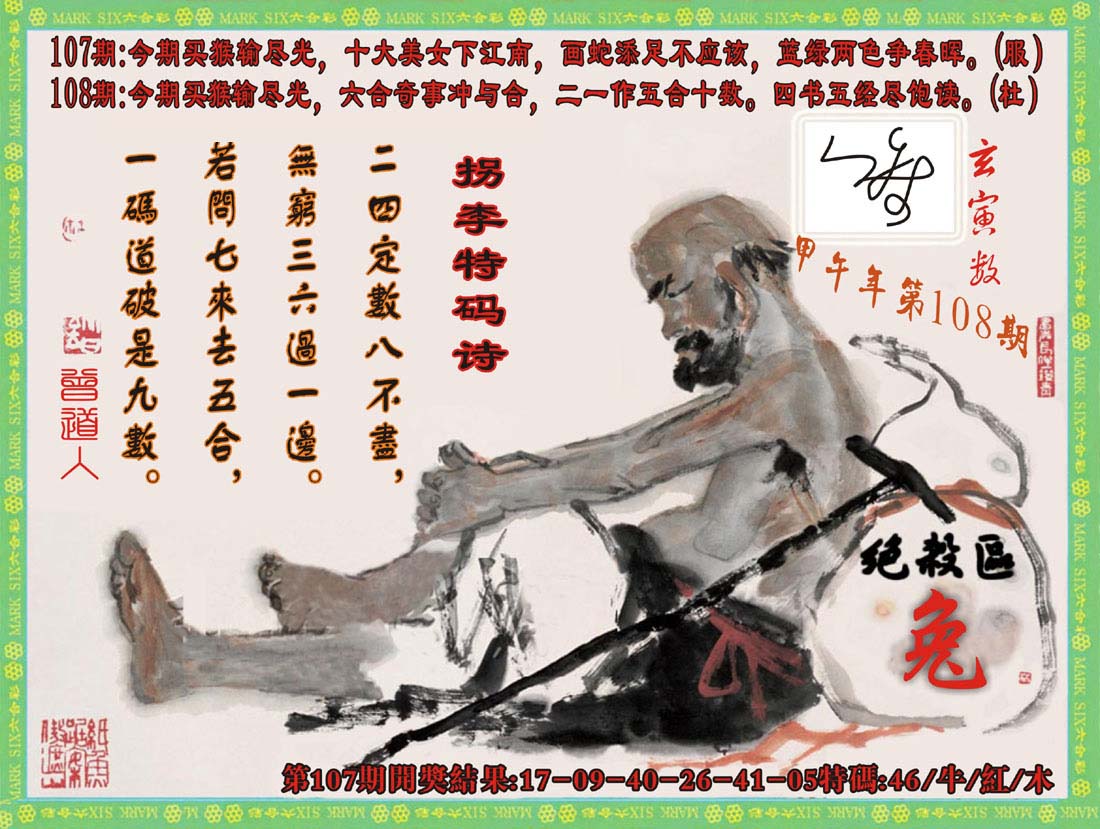 MARK SIX六合彩
107期:今期买猴输尽光，十大美女下江南，画蛇添足不应该，蓝绿两色争春晖。(服)
108期:今期买猴输尽光，六合奇事冲与合，二一作五合十数。四书五经尽饱读。(杜)
玄寅数
甲午年第108期
拐李特码诗
二四定數八不盡，
無窮三六過一邊。
若問七來去五合，
一碼道破是九數。
曾道人
绝殺區
兔
第107期開獎結果:17-09-40-26-41-05特碼:46/牛/紅/木